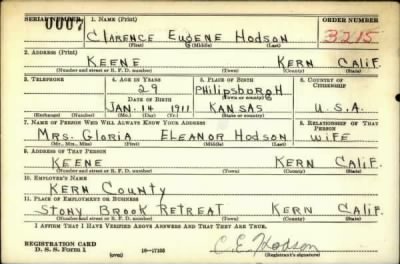 SERIAL NUMBER 1. NAME (Print) ORDER NUMBER
0007 CLARENCE EUGENE HODSON 3215
(First) (Middle) (Last)
2. ADDRESS (Print)
KEENE KERN CALIF.
(Number and street or R. F. D. number) (Town) (County) (State)
3. TELEPHONE 4. AGE IN YEARS 5. PLACE OF BIRTH 6. COUNTRY OF CITIZENSHIP
29 PHILIPSBURGH
DATE OF BIRTH (Town or county)
JAN. 14 1911 KANSAS U.S.A.
(Exchange) (Number) (Mo.) (Day) (Yr.) (State or country)
7. NAME OF PERSON WHO WILL ALWAYS KNOW YOUR ADDRESS 8. RELATIONSHIP OF THAT PERSON
MRS. GLORIA ELEANOR HODSON WIFE
(Mr., Mrs., Miss) (First) (Middle) (Last)
9. ADDRESS OF THAT PERSON
KEENE KERN CALIF.
(Number and street or R. F. D. number) (Town) (County) (State)
10. EMPLOYER'S NAME
KERN COUNTY
11. PLACE OF EMPLOYMENT OR BUSINESS
STONY BROOK RETREAT KERN CALIF.
(Number and street or R. F. D. number) (Town) (County) (State)
I AFFIRM THAT I HAVE VERIFIED ABOVE ANSWERS AND THAT THEY ARE TRUE.
REGISTRATION CARD
D. S. S. Form 1 (over) 16—17105 C.E. Hodson
(Registrant's signature)